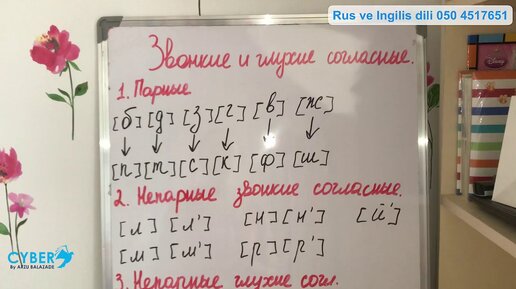 Rus ve Ingilis dili 050 4517651
Звонкие и глухие согласные.
1. Парные
[б] [д] [з] [г] [в] [ж]
[п] [т] [с] [к] [ф] [ш]
2. Непарные звонкие согласные.
[л] [л'] [н] [н'] [й']
[м] [м'] [р] [р']
3. Непарные глухие согл.
CYBER
By ARZU BALAZADE